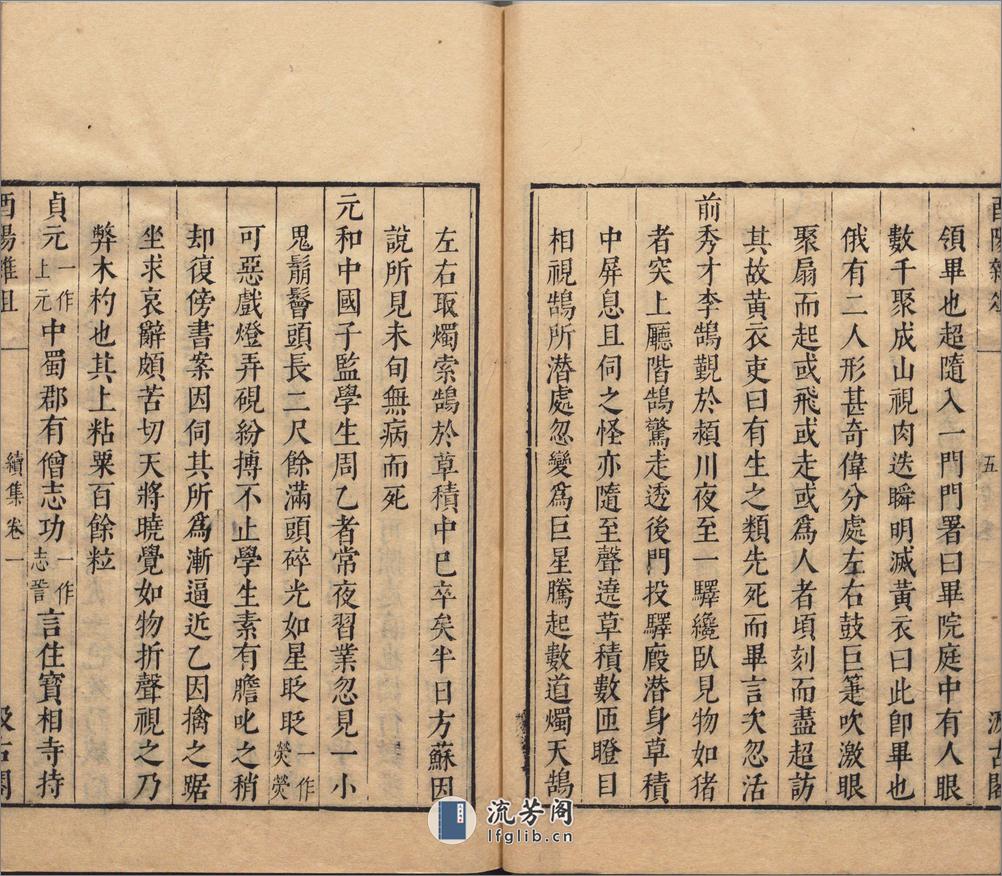 酉陽雜俎
五
汲古閣
領畢也超隨入一門門署曰畢院庭中有人眼
數千聚成山視肉迭瞬明滅黃衣曰此卽畢也
俄有二人形甚奇偉分處左右鼓巨箑吹激眼
聚扇而起或飛或走或爲人者頃刻而盡超訪
其故黃衣吏曰有生之類先死而畢言次忽活
前秀才李鵠覲於潁川夜至一驛纔臥見物如猪
者突上廳階鵠驚走透後門投驛廏潜身草積
中屏息且伺之怪亦隨至聲遶草積數匝瞪目
相視鵠所潜處忽變爲巨星騰起數道燭天鵠
左右取燭索鵠於草積中巳卒矣半日方蘇因
說所見未旬無病而死
元和中國子監學生周乙者常夜習業忽見一小
鬼鬅鬙頭長二尺餘滿頭碎光如星眨眨一作熒熒
可惡戲燈弄硯紛搏不止學生素有膽叱之稍
却復傍書案因伺其所爲漸逼近乙因擒之踞
坐求哀辭頗苦切天將曉覺如物折聲視之乃
弊木杓也其上粘粟百餘粒
貞元一作上元中蜀郡有僧志功一作志誓言住寶相寺持
酉陽雜俎
續集卷一
汲古閣
流芳阁
lfglib.cn